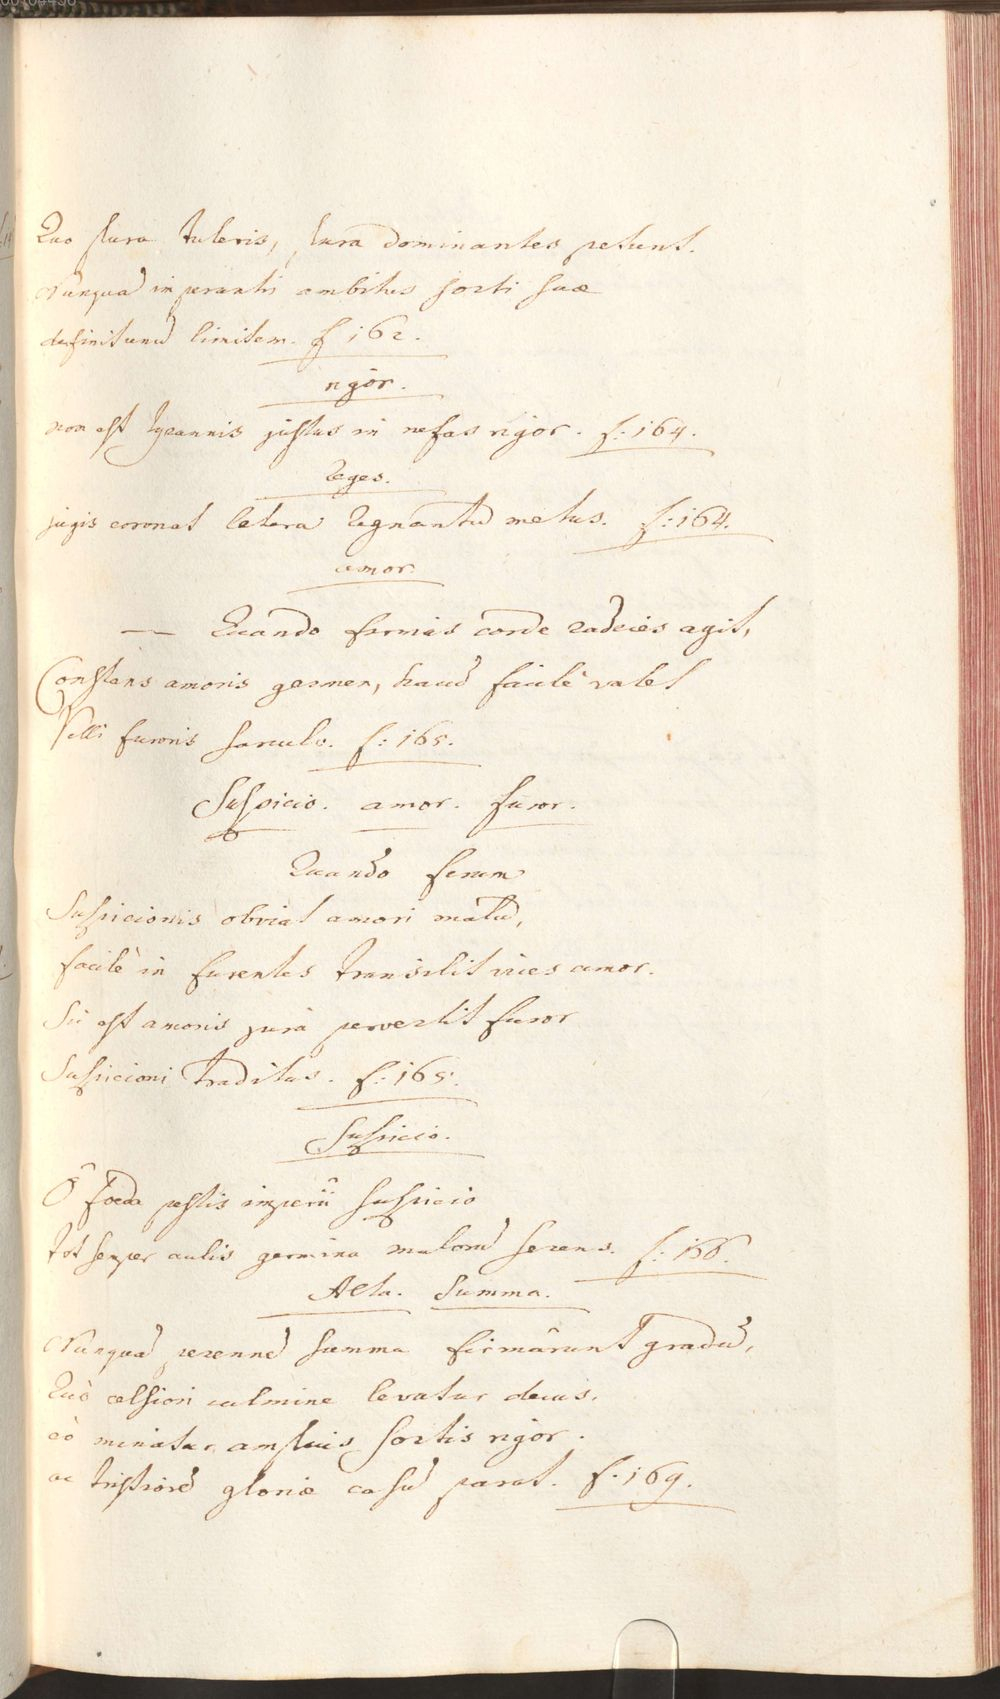 Quo plura tuleris, plura dominantes petunt.
Nunquā imperantis ambitus sorti suæ
definitum limitem. f. 162.
rigor.
non est tyrannis justus in nefas rigor. f: 164.
Reges.
jugis coronat latera Regnantū metus. f: 164.
amor
— Quando firmas corde radices agit,
Constans amoris germen, haud facilè valet
Velli furoris sarculo. f: 165.
Suspicio. amor. furor.
Quando ferum
Suspicionis obviat amori malū,
facilè in furentes transilit vices amor.
Sic est amoris jura pervertit furor
Suspicioni traditus. f: 165.
Suspicio.
O foeda pestis imperii suspicio
tot semper aulis germina malorū serens. f: 166.
Alta. Summa.
Nunquā perennē summa firmârunt gradū,
Quò celsiori culmine levatur decus,
eò minatur amplius sortis rigor.
ac tristiorē gloriæ casū parat. f. 169.